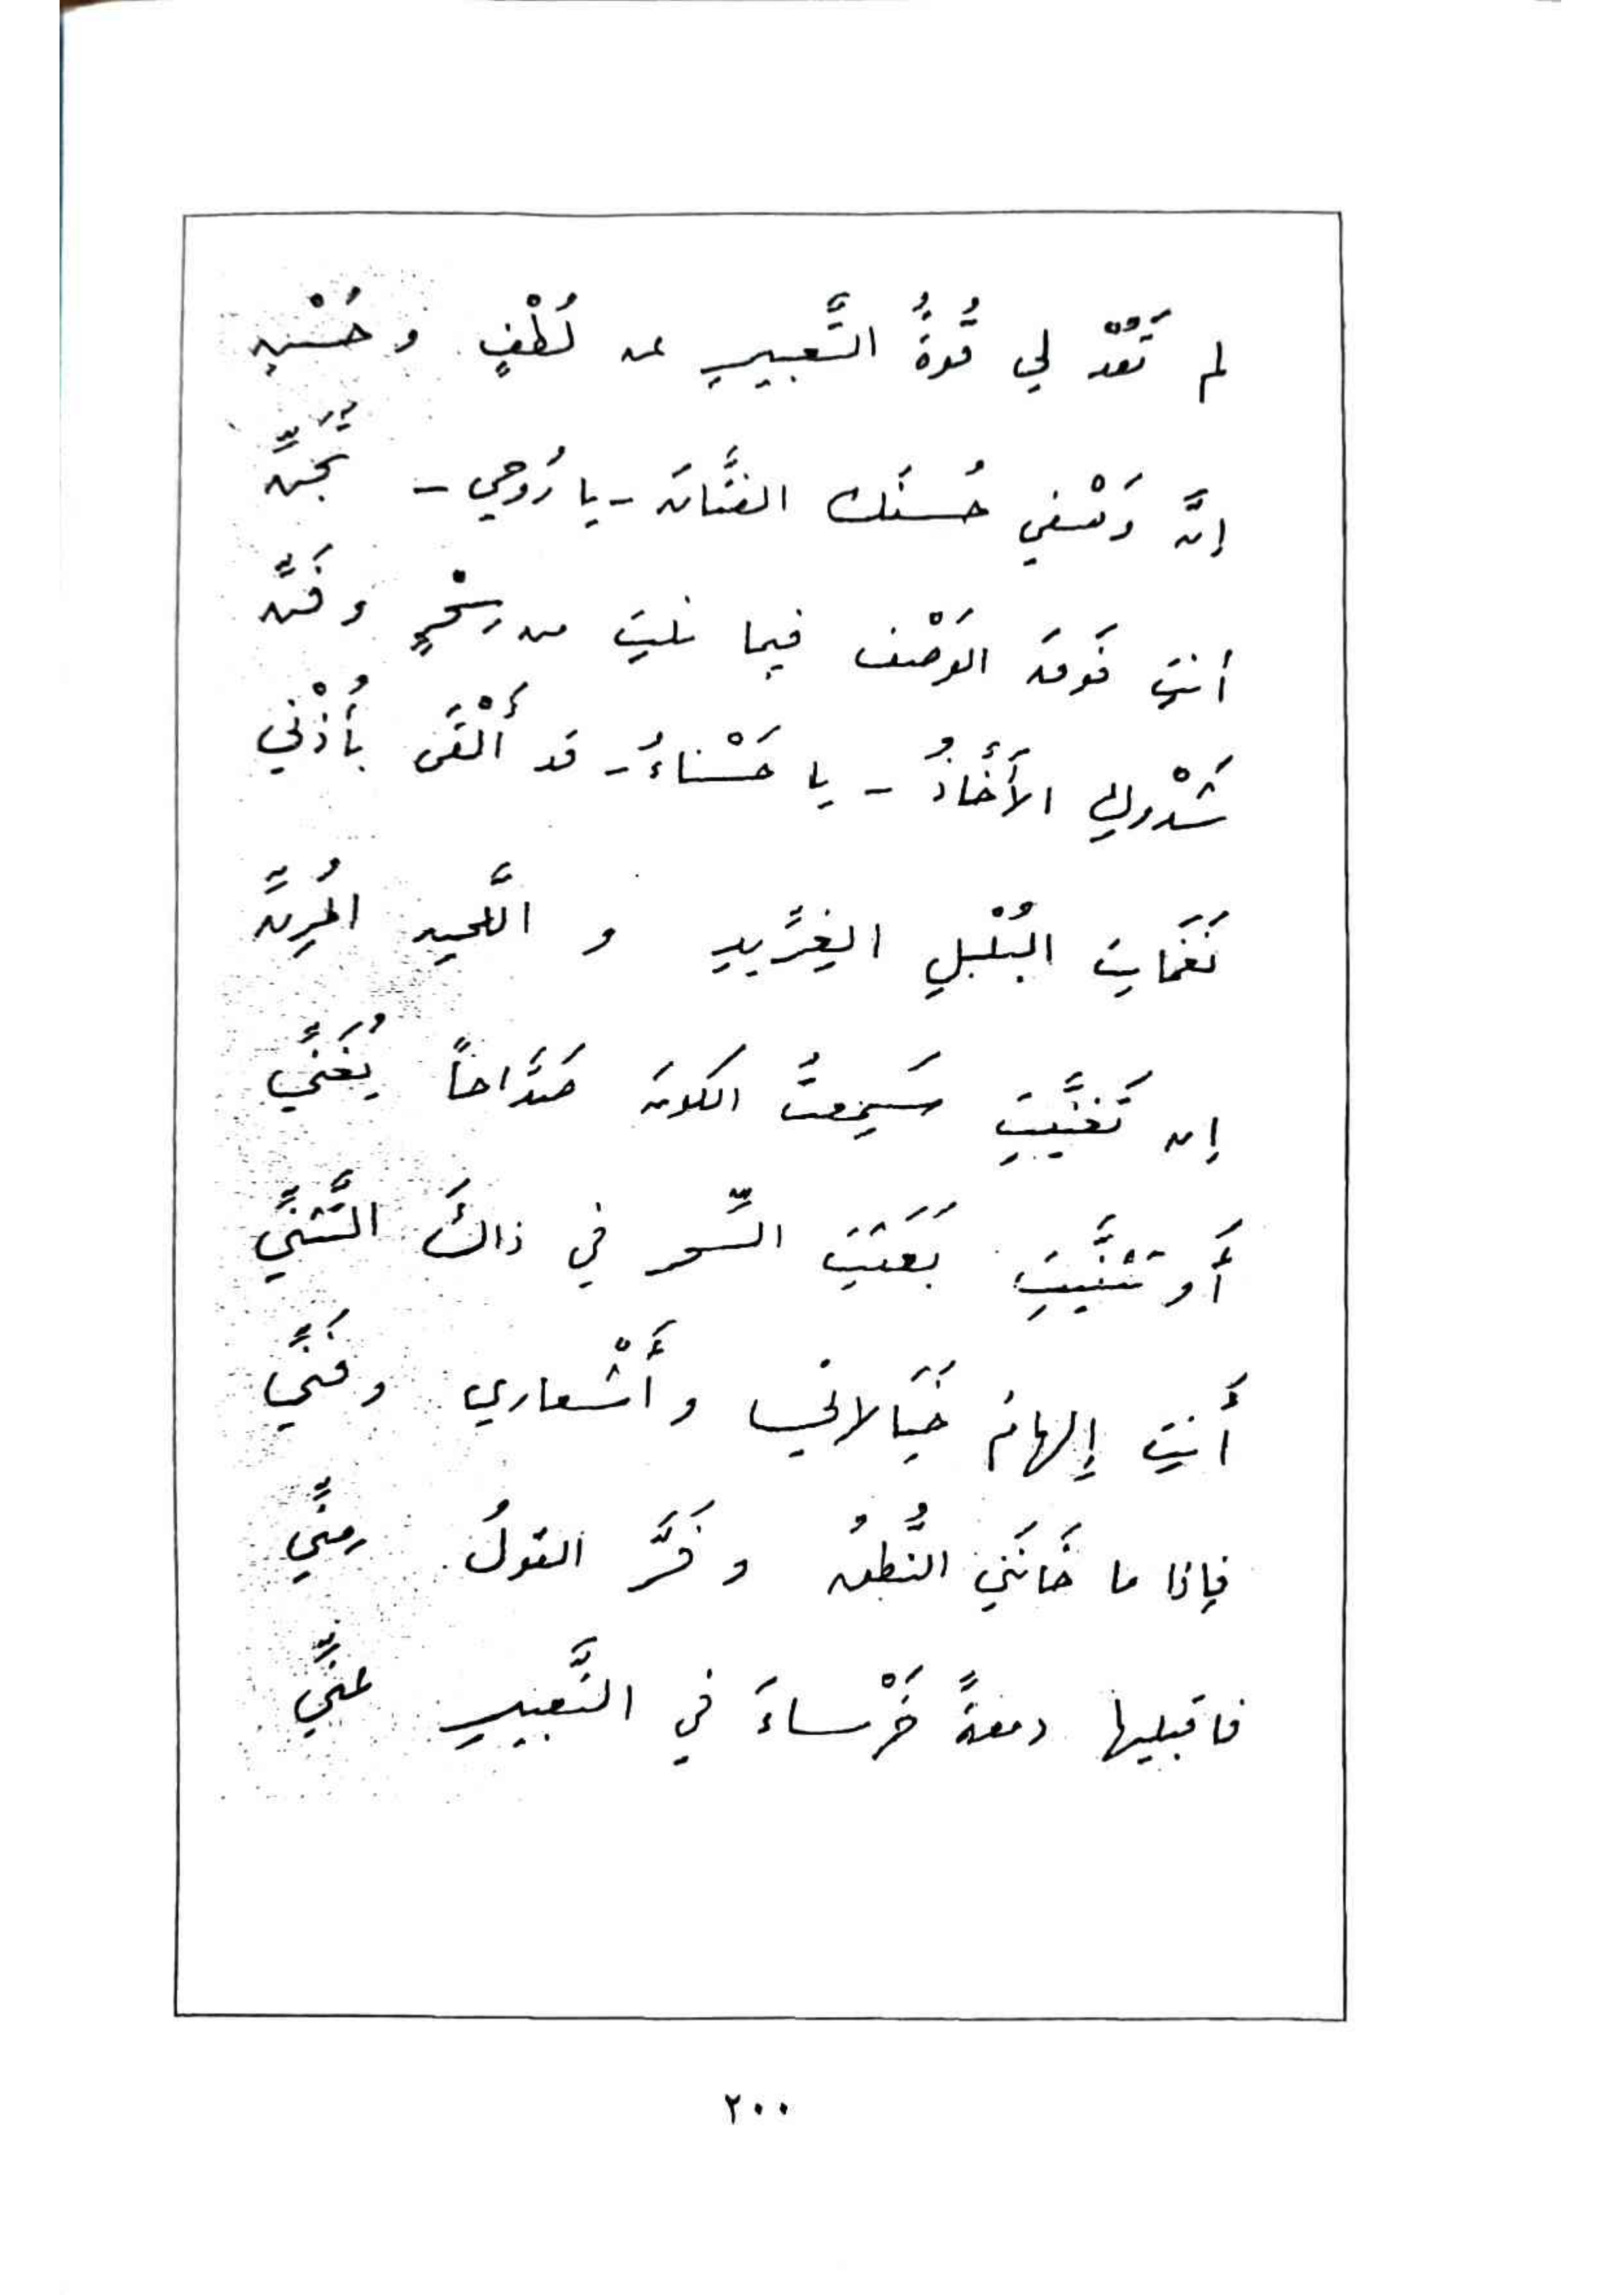 لم تَعُدْ لي قُوَّةُ التَّعبيرِ عن لُطْفٍ وحُسْنِ
إنَّ وَصْفي حُسنَك الفتَّانَ - يا رُوحي - تَجَنِّ
أنتِ فَوقَ الوَصْف فيما نلتِ من سِحْرٍ وفَنِّ
شَدْوكِ الأَخَّاذُ - يا حَسْناءُ - قد أَلْقَى بأُذْني
نَغَماتِ البُلْبلِ الغِرِّيدِ و اللَّحنِ المُرِنِّ
إن تَغنَّيتِ سَمِعتُ الكونَ صَدَّاحاً يُغَنِّي
أَو تَثنَّيتِ بَعَثتِ السِّحر في ذاكَ التَّثنِّي
أَنتِ إِلهامُ خَيَالاتي وأَشْعاري وفَنِّي
فإذا ما خَانَني النُّطقُ وفَرَّ القولُ مِنِّي
فاقبليها دمعةً خَرْساءَ في التَّعبيرِ عَنِّي
٢٠٠